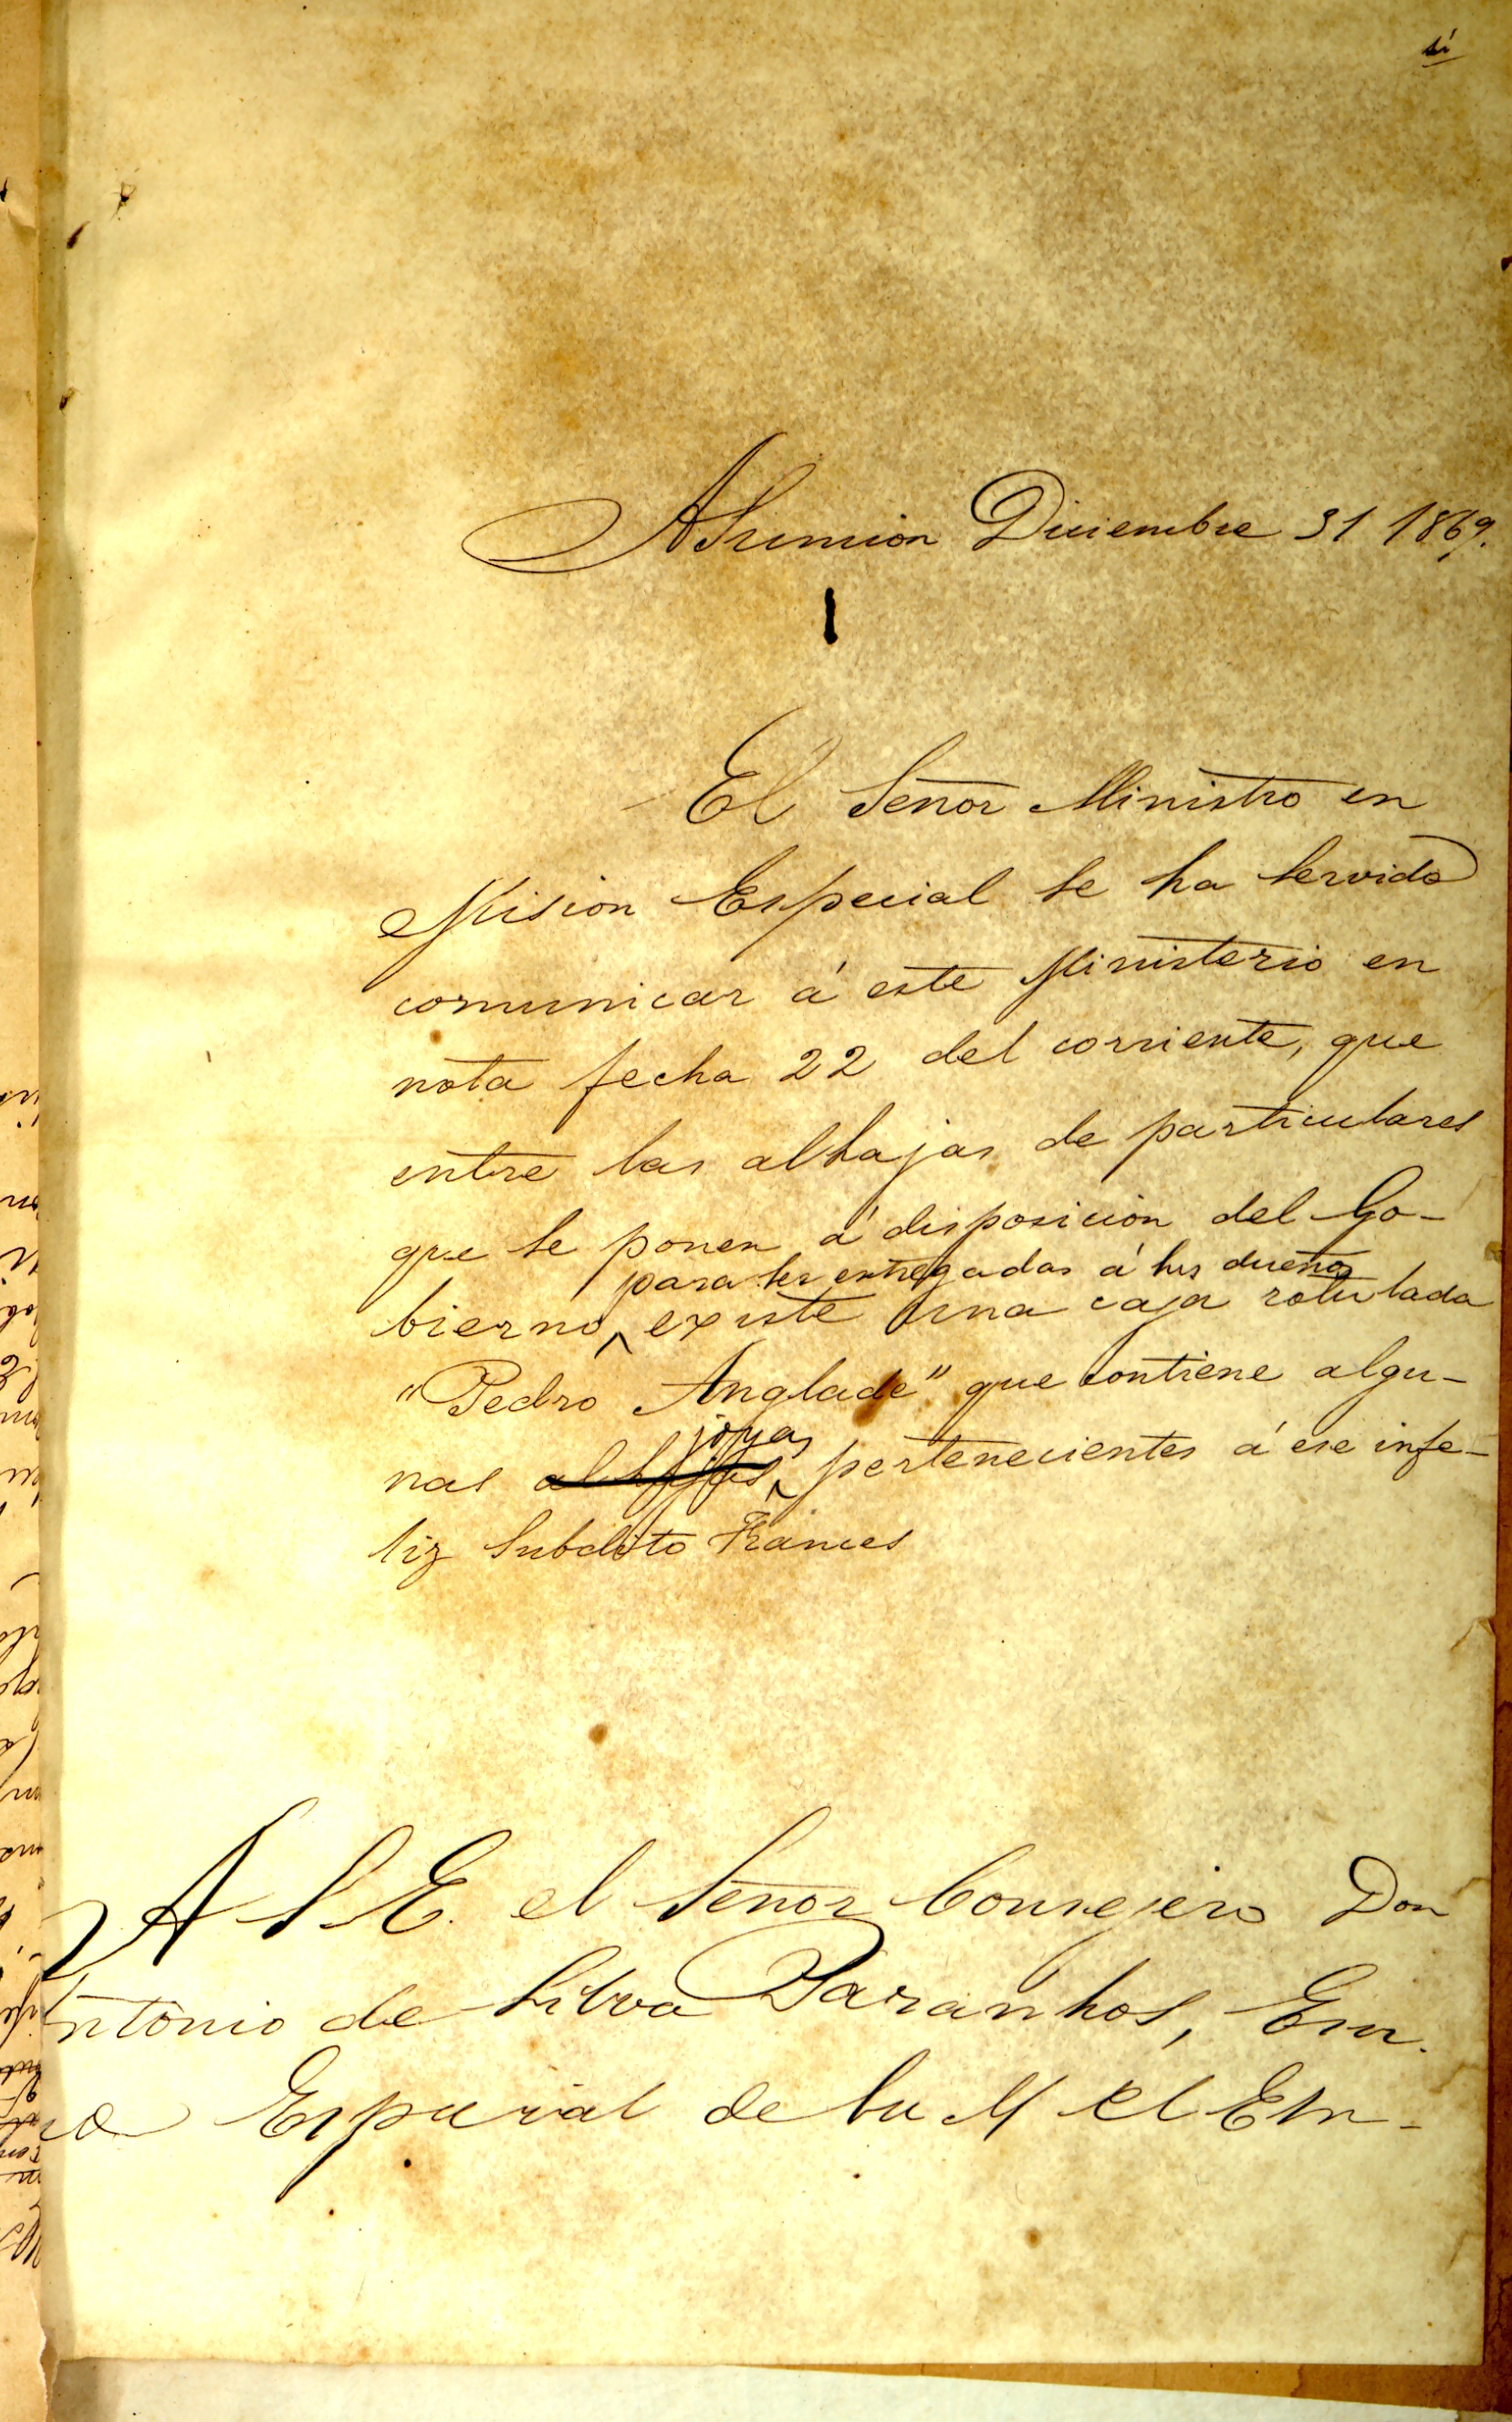 Asuncion Diciembre 31 1869.
El Señor Ministro en
Mision Especial se ha servido
comunicar á este Ministerio en
nota fecha 22 del corriente, que
entre las alhajas de particulares
que se ponen á disposicion del Go-
para ser entregadas á sus dueños
bierno, existe una caja rotulada
"Pedro Anglade" que contiene algu-
joyas
nas alhajas pertenecientes á ese infe-
liz Subdito Frances
A S. E. el Señor Consejero Don
ntonio de Silva Paranhos, Em.
Especial de Su M el Em-